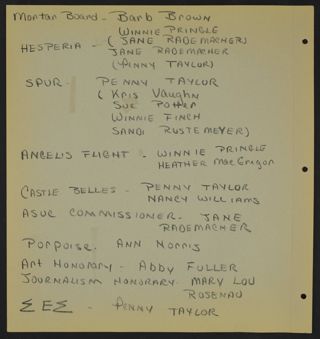 Mortar Board - Barb Brown
WINNIE PRINGLE
HESPERIA - (JANE RADEMACHER)
JANE RADEMACHER
(PENNY TAYLOR)
SPUR - PENNY TAYLOR
(KRIS VAUGHN
SUE POTTER
WINNIE FINCH
SANDI RUSTEMEYER)
ANGELS FLIGHT - WINNIE PRINGLE
HEATHER MacGregor
CASTLE BELLES - PENNY TAYLOR
NANCY WILLIAMS
ASUC COMMISSIONER - JANE
RADEMACHER
PORPOISE - ANN NORRIS
Art Honorary - Abby FULLER
JOURNALISM HONORARY - MARY LOU
ROSENAU
Σ E Σ - PENNY TAYLOR